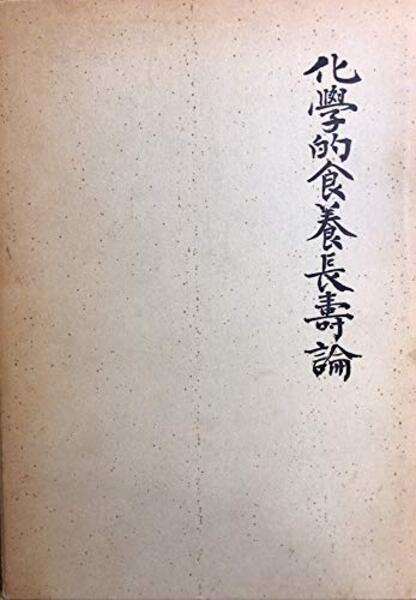 化學的食養長壽論